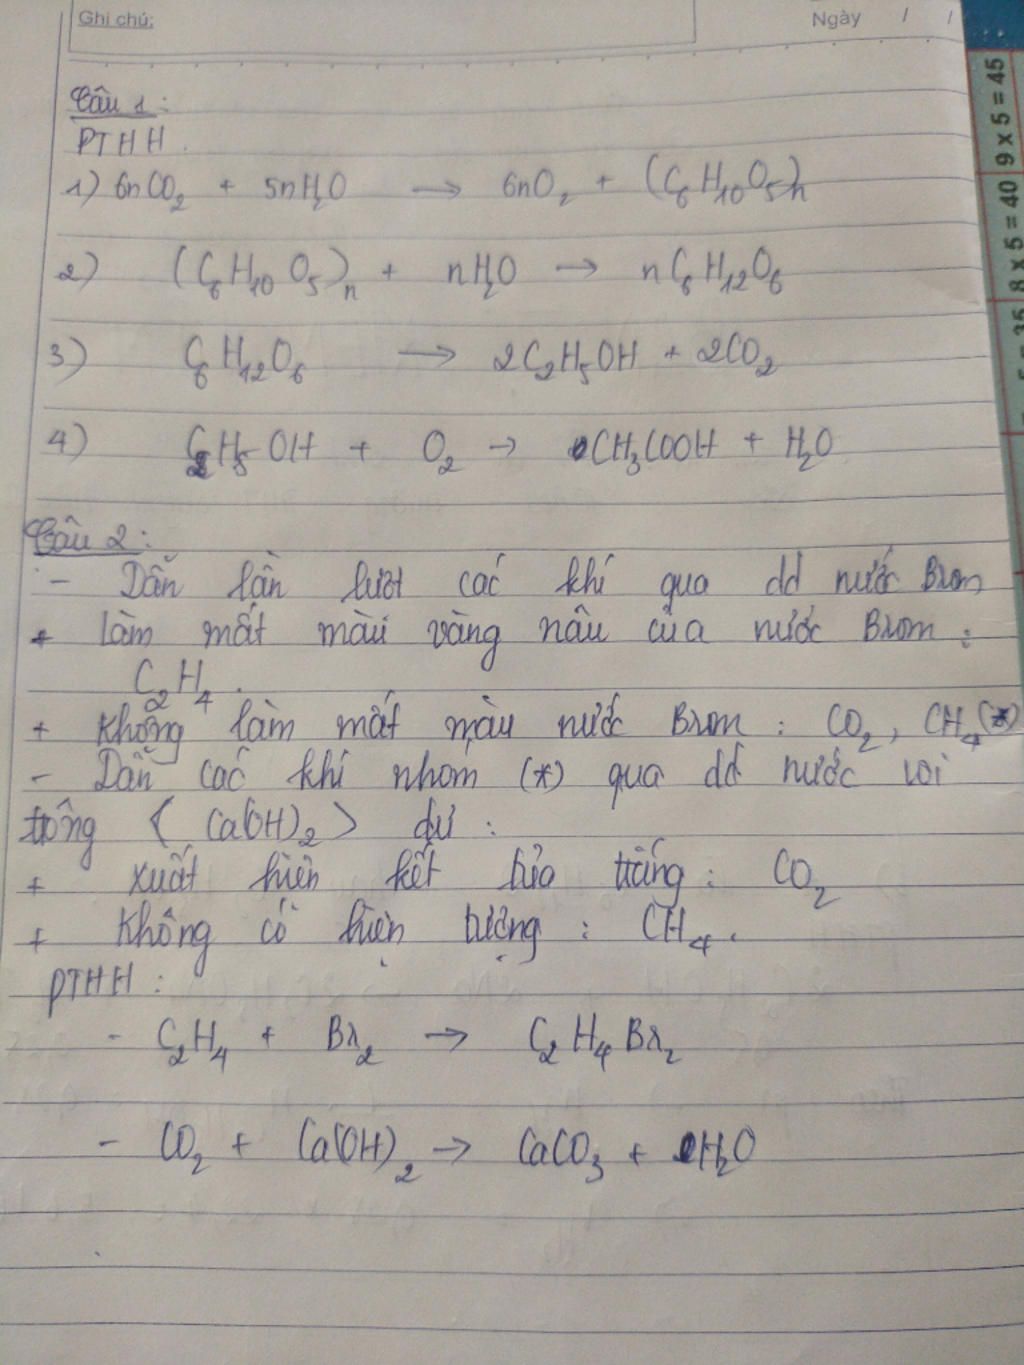 Ghi chú:
Ngày / /
Câu 1:
PTHH.
1) 6nCO₂ + 5nH₂O → 6nO₂ + (C₆H₁₀O₅)n
2) (C₆H₁₀O₅)n + nH₂O → nC₆H₁₂O₆
3) C₆H₁₂O₆ → 2C₂H₅OH + 2CO₂
4) C₂H₅OH + O₂ → CH₃COOH + H₂O
Câu 2:
- Dẫn lần lượt các khí qua dd nước Brom
+ làm mất màu vàng nâu của nước Brom:
C₂H₄.
+ Không làm mất màu nước Brom: CO₂, CH₄(*)
- Dẫn các khí nhóm (*) qua dd nước vôi
trong (Ca(OH)₂) dư:
+ xuất hiện kết tủa trắng: CO₂
+ Không có hiện tượng: CH₄.
PTHH:
- C₂H₄ + Br₂ → C₂H₄Br₂
- CO₂ + Ca(OH)₂ → CaCO₃ + H₂O
9 x 5 = 45
8 x 5 = 40
5 = 35